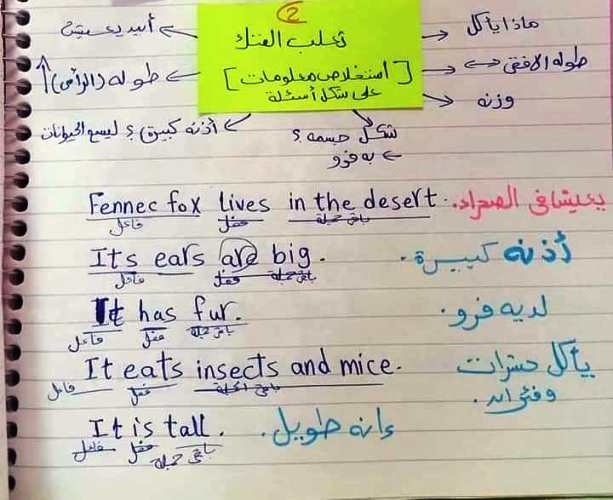 2
ثعلب الفنك
[استخلاص معلومات]
على شكل أسئلة
ماذا يأكل
طوله الافقي
وزنه
أين يعيش
طوله (الرأسي)
أذنه كبيرة؟ ليسمع الحيوانات
شكل جسمه؟
به فرو
Fennec fox lives in the desert. يعيش في الصحراء.
فاعل فعل باقي جملة
Its ears are big. أذنه كبيرة.
فاعل فعل باقي جملة
It has fur. لديه فرو.
فاعل فعل باقي جملة
It eats insects and mice. يأكل حشرات
وفئران.
فاعل فعل باقي الجملة
It is tall. إنه طويل.
فاعل فعل باقي جملة